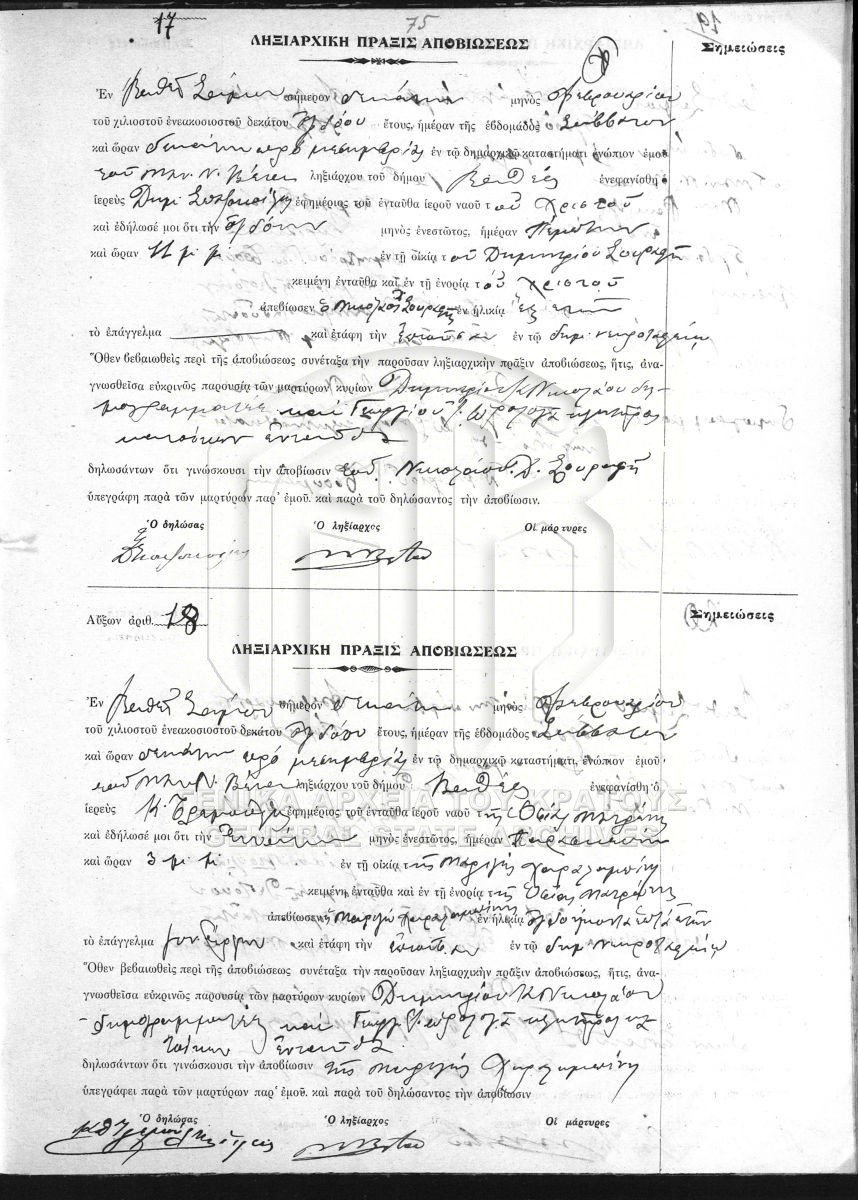 17
75
19
ΛΗΞΙΑΡΧΙΚΗ ΠΡΑΞΙΣ ΑΠΟΒΙΩΣΕΩΣ
Σημειώσεις
Ἐν Βαθεῖ Σάμου σήμερον δεκάτην μηνὸς Φεβρουαρίου
τοῦ χιλιοστοῦ ἐνεακοσιοστοῦ δεκάτου ὀγδόου ἔτους, ἡμέραν τῆς ἑβδομάδος Σάββατον
καὶ ὥραν δεκάτην πρὸ μεσημβρίας ἐν τῷ δημαρχικῷ καταστήματι ἐνώπιον ἐμοῦ
τοῦ Ν. ληξιάρχου τοῦ δήμου Βαθέος ἐνεφανίσθη ὁ
ἱερεὺς Δημ. ἐφημέριος τοῦ ἐνταῦθα ἱεροῦ ναοῦ τοῦ Χριστοῦ
καὶ ἐδήλωσέ μοι ὅτι τὴν ὀγδόην μηνὸς ἐνεστῶτος, ἡμέραν Πέμπτην
καὶ ὥραν 11 μ. μ. ἐν τῇ οἰκίᾳ τοῦ Δημητρίου
κειμένῃ ἐνταῦθα καὶ ἐν τῇ ἐνορίᾳ τοῦ Χριστοῦ
ἀπεβίωσεν ὁ Νικόλαος ἐν ἡλικίᾳ ἓξ ἐτῶν
τὸ ἐπάγγελμα καὶ ἐτάφη τὴν ἐννάτην ἐν τῷ δημ. νεκροταφείῳ
Ὅθεν βεβαιωθεὶς περὶ τῆς ἀποβιώσεως συνέταξα τὴν παροῦσαν ληξιαρχικὴν πρᾶξιν ἀποβιώσεως, ἥτις, ἀνα-
γνωσθεῖσα εὐκρινῶς παρουσίᾳ τῶν μαρτύρων κυρίων Δημητρίου Κ. Νικολάου δη-
μογραμματέως καὶ Γεωργίου κλητῆρος
κατοίκων ἐνταῦθα
δηλωσάντων ὅτι γινώσκουσι τὴν ἀποβίωσιν τοῦ Νικολάου Δ.
ὑπεγράφη παρὰ τῶν μαρτύρων παρ' ἐμοῦ. καὶ παρὰ τοῦ δηλώσαντος τὴν ἀποβίωσιν.
Ὁ δηλώσας Ὁ ληξίαρχος Οἱ μάρτυρες
Αὔξων ἀριθ. 18
Σημειώσεις
ΛΗΞΙΑΡΧΙΚΗ ΠΡΑΞΙΣ ΑΠΟΒΙΩΣΕΩΣ
Ἐν Βαθεῖ Σάμου σήμερον δεκάτην μηνὸς Φεβρουαρίου
τοῦ χιλιοστοῦ ἐνεακοσιοστοῦ δεκάτου ὀγδόου ἔτους, ἡμέραν τῆς ἑβδομάδος Σάββατον
καὶ ὥραν δεκάτην πρὸ μεσημβρίας ἐν τῷ δημαρχικῷ καταστήματι, ἐνώπιον ἐμοῦ
τοῦ Ν. ληξιάρχου τοῦ δήμου Βαθέος ἐνεφανίσθη ὁ
ΓΕΝΙΚΑ ΑΡΧΕΙΑ ΤΟΥ ΚΡΑΤΟΥΣ
ἱερεὺς Κ. ἐφημέριος τοῦ ἐνταῦθα ἱεροῦ ναοῦ τῆς Ὁσίας Ματρώνης
GENERAL STATE ARCHIVES
καὶ ἐδήλωσέ μοι ὅτι τὴν ἐννάτην μηνὸς ἐνεστῶτος, ἡμέραν Παρασκευὴν
καὶ ὥραν 3 μ. μ. ἐν τῇ οἰκίᾳ τῆς Μαριγῶς
κειμένῃ ἐνταῦθα καὶ ἐν τῇ ἐνορίᾳ τῆς Ὁσίας Ματρώνης
ἀπεβίωσεν ἡ Μαριγὼ ἐν ἡλικίᾳ ἐτῶν
τὸ ἐπάγγελμα καὶ ἐτάφη τὴν ἐν τῷ δημ. νεκροταφείῳ
Ὅθεν βεβαιωθεὶς περὶ τῆς ἀποβιώσεως συνέταξα τὴν παροῦσαν ληξιαρχικὴν πρᾶξιν ἀποβιώσεως, ἥτις, ἀνα-
γνωσθεῖσα εὐκρινῶς παρουσίᾳ τῶν μαρτύρων κυρίων Δημητρίου Κ. Νικολάου
δημογραμματέως καὶ Γεωργ. κλητῆρος κα-
τοίκων ἐνταῦθα
δηλωσάντων ὅτι γινώσκουσι τὴν ἀποβίωσιν τῆς Μαριγῶς
ὑπεγράφει παρὰ τῶν μαρτύρων παρ' ἐμοῦ. καὶ παρὰ τοῦ δηλώσαντος τὴν ἀποβίωσιν
Ὁ δηλώσας Ὁ ληξίαρχος Οἱ μάρτυρες